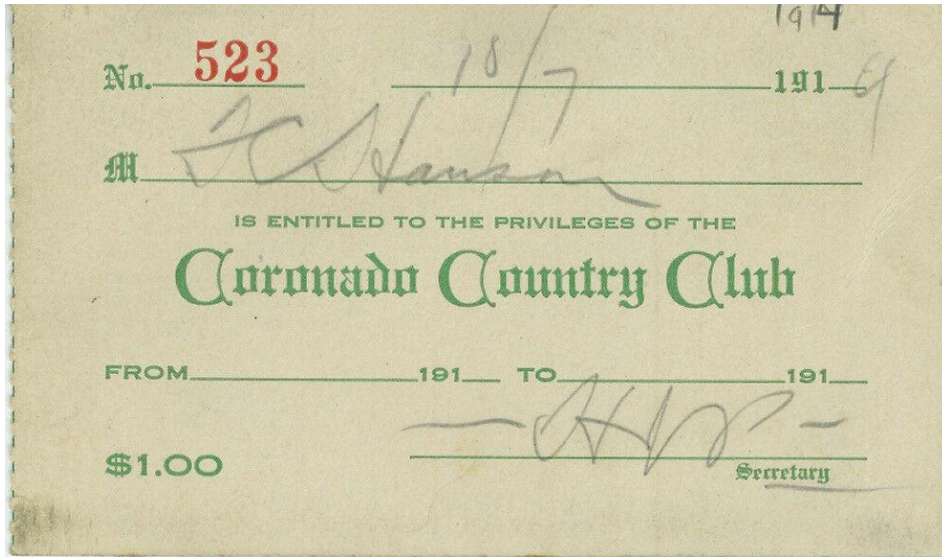 1914
No. 523 10/7 1914
M F C Hanson
IS ENTITLED TO THE PRIVILEGES OF THE
Coronado Country Club
FROM 191 TO 191
$1.00
Secretary